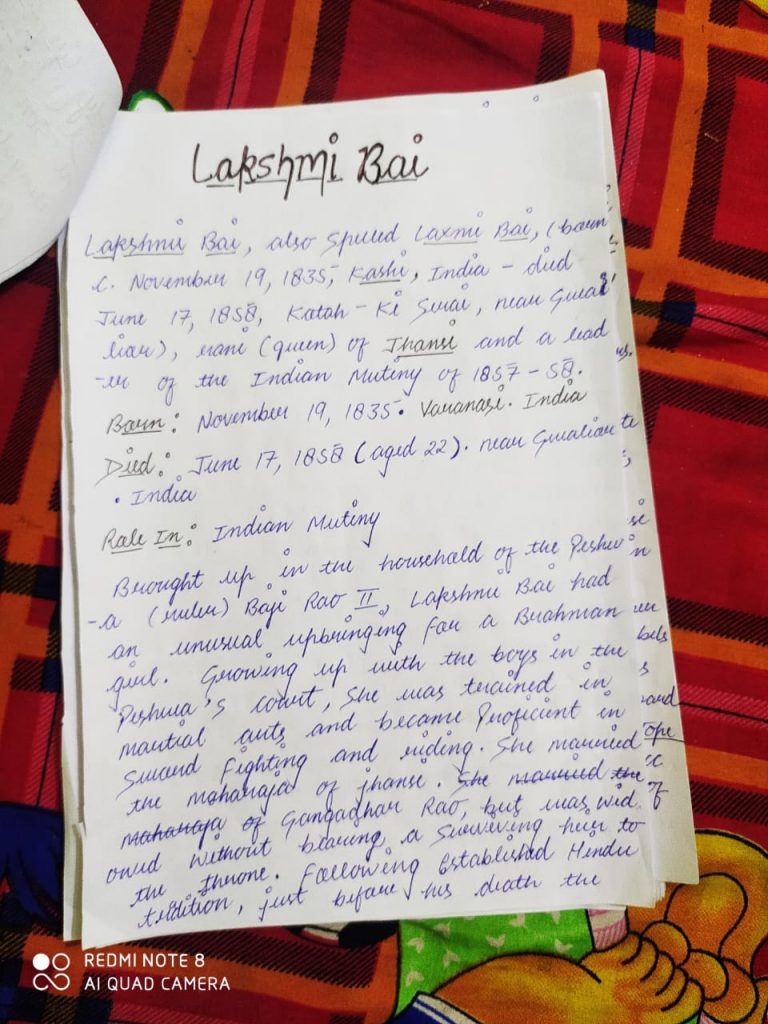 Lakshmi Bai
Lakshmi Bai, also spelled Laxmi Bai, (born
c. November 19, 1835, Kashi, India - died
June 17, 1858, Kotah - Ki Serai, near Gwal
lior), rani (queen) of Jhansi and a lead
-er of the Indian Mutiny of 1857 - 58.
Born: November 19, 1835 • Varanasi • India
Died: June 17, 1858 (aged 22). near Gwalior
• India
Role In: Indian Mutiny
Brought up in the household of the Peshw
-a (ruler) Baji Rao II, Lakshmi Bai had
an unusual upbringing for a Brahman
girl. Growing up with the boys in the
Peshwa's court, She was trained in
martial arts and became Proficient in
Sword fighting and riding. She married
the maharaja of jhansi. She married the
maharaja of Gangadhar Rao, but was wid
owed without bearing a surviving heir to
the throne. Following Established Hindu
tradition, just before his death the
REDMI NOTE 8
AI QUAD CAMERA